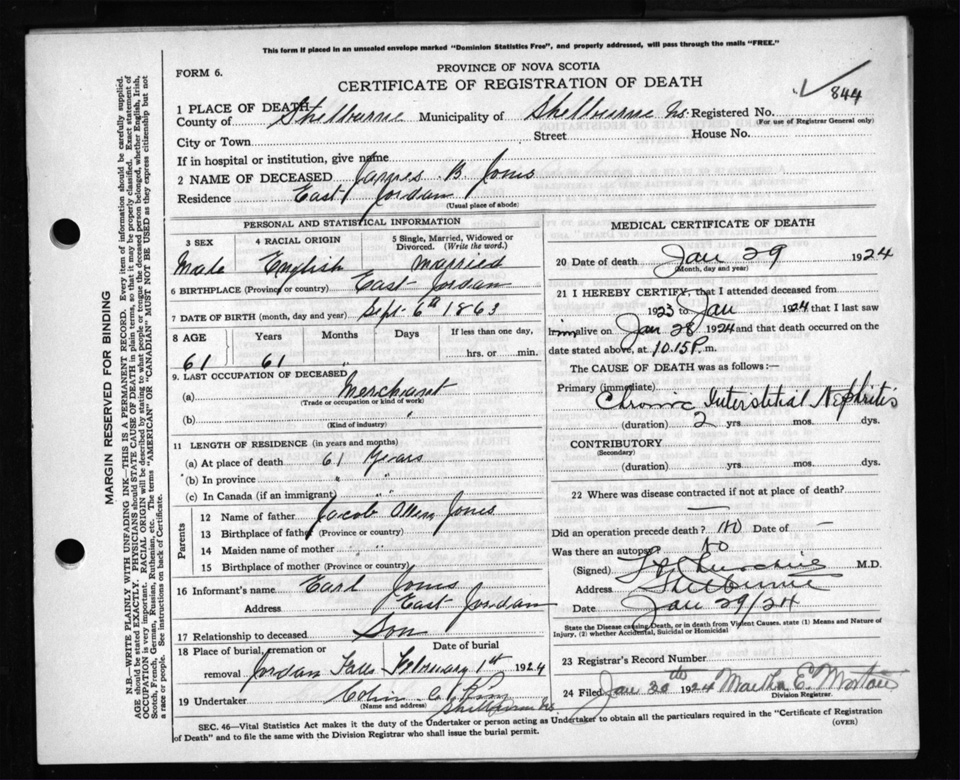 This form if placed in an unsealed envelope marked "Dominion Statistics Free", and properly addressed, will pass through the mails "FREE."
FORM 6.
PROVINCE OF NOVA SCOTIA
CERTIFICATE OF REGISTRATION OF DEATH
844
1 PLACE OF DEATH—
County of Shelburne Municipality of Shelburne N.S. Registered No.
(For use of Registrar General only)
City or Town Street House No.
If in hospital or institution, give name
2 NAME OF DECEASED James B. Jones
Residence East Jordan
(Usual place of abode)
PERSONAL AND STATISTICAL INFORMATION
3 SEX 4 RACIAL ORIGIN 5 Single, Married, Widowed or Divorced. (Write the word.)
Male English Married
6 BIRTHPLACE (Province or country) East Jordan
7 DATE OF BIRTH (month, day and year) Sept. 6th 1863
8 AGE Years Months Days If less than one day,
61 61 " hrs. or min.
9. LAST OCCUPATION OF DECEASED
(a) Merchant
(Trade or occupation or kind of work)
(b) "
(Kind of industry)
11 LENGTH OF RESIDENCE (in years and months)
(a) At place of death 61 Years
(b) In province " "
(c) In Canada (if an immigrant) " "
Parents
12 Name of father Jacob Jones
13 Birthplace of father (Province or country)
14 Maiden name of mother " "
15 Birthplace of mother (Province or country)
16 Informant's name Earl Jones
Address East Jordan
17 Relationship to deceased Son
18 Place of burial, cremation or removal Date of burial
Jordan Falls February 1st 1924
19 Undertaker Colin
(Name and address) Shelburne N.S.
MEDICAL CERTIFICATE OF DEATH
20 Date of death Jan 29 1924
(Month, day and year)
21 I HEREBY CERTIFY, that I attended deceased from
1923 to Jan 1924 that I last saw
him alive on Jan 28 1924 and that death occurred on the
date stated above, at 10.15 P. m.
The CAUSE OF DEATH was as follows:—
Primary (immediate)
Chronic Interstitial Nephritis
(duration) 2 yrs. mos. dys.
CONTRIBUTORY
(Secondary)
(duration) yrs. mos. dys.
22 Where was disease contracted if not at place of death?
Did an operation precede death? No Date of —
Was there an autopsy? No
(Signed) Churchill M.D.
Address Shelburne
Date Jan 29/24
State the Disease causing Death, or in death from Violent Causes, state (1) Means and Nature of
Injury, (2) whether Accidental, Suicidal or Homicidal
23 Registrar's Record Number
24 Filed Jan 30th 1924 Martha E. Morton
Division Registrar.
SEC. 46—Vital Statistics Act makes it the duty of the Undertaker or person acting as Undertaker to obtain all the particulars required in the "Certificate of Registration
of Death" and to file the same with the Division Registrar who shall issue the burial permit.
(OVER)
MARGIN RESERVED FOR BINDING
N.B.—WRITE PLAINLY WITH UNFADING INK—THIS IS A PERMANENT RECORD. Every item of information should be carefully supplied.
AGE should be stated EXACTLY. PHYSICIANS should STATE CAUSE OF DEATH in plain terms, so that it may be properly classified. Exact statement of
OCCUPATION is very important. RACIAL ORIGIN will be described by stating to what people or tongue the deceased person belonged, whether English, Irish,
Scotch, French, German, Russian, Ruthenian, etc. The terms "AMERICAN" or "CANADIAN" MUST NOT BE USED as they express citizenship but not
a race or people. See instructions on back of Certificate.